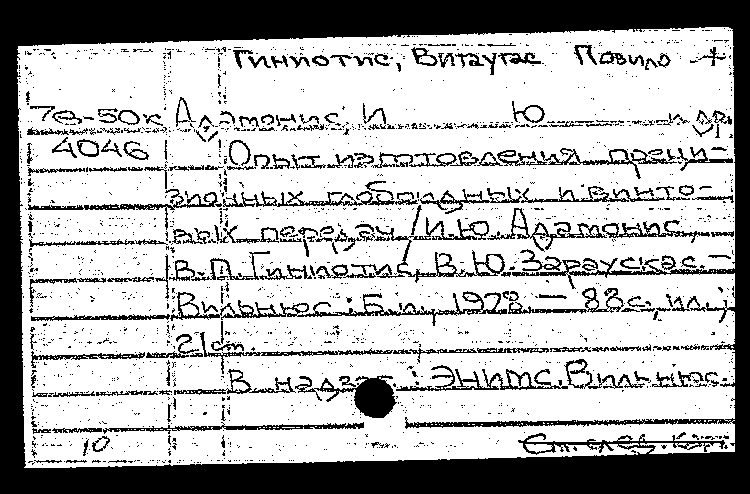 Гиниотис, Витаутас Повило +
78-50к Адамонис, И Ю и др.
4046 Опыт изготовления преци-
зионных глобоидных и винто-
вых передач / И.Ю. Адамонис,
В.П. Гиниотис, В.Ю. Зараускас. —
Вильнюс : Б.и., 1978. — 83 с., ил.;
21 см.
В надзаг : ЭНИМС. Вильнюс.
10 См. след. карт.